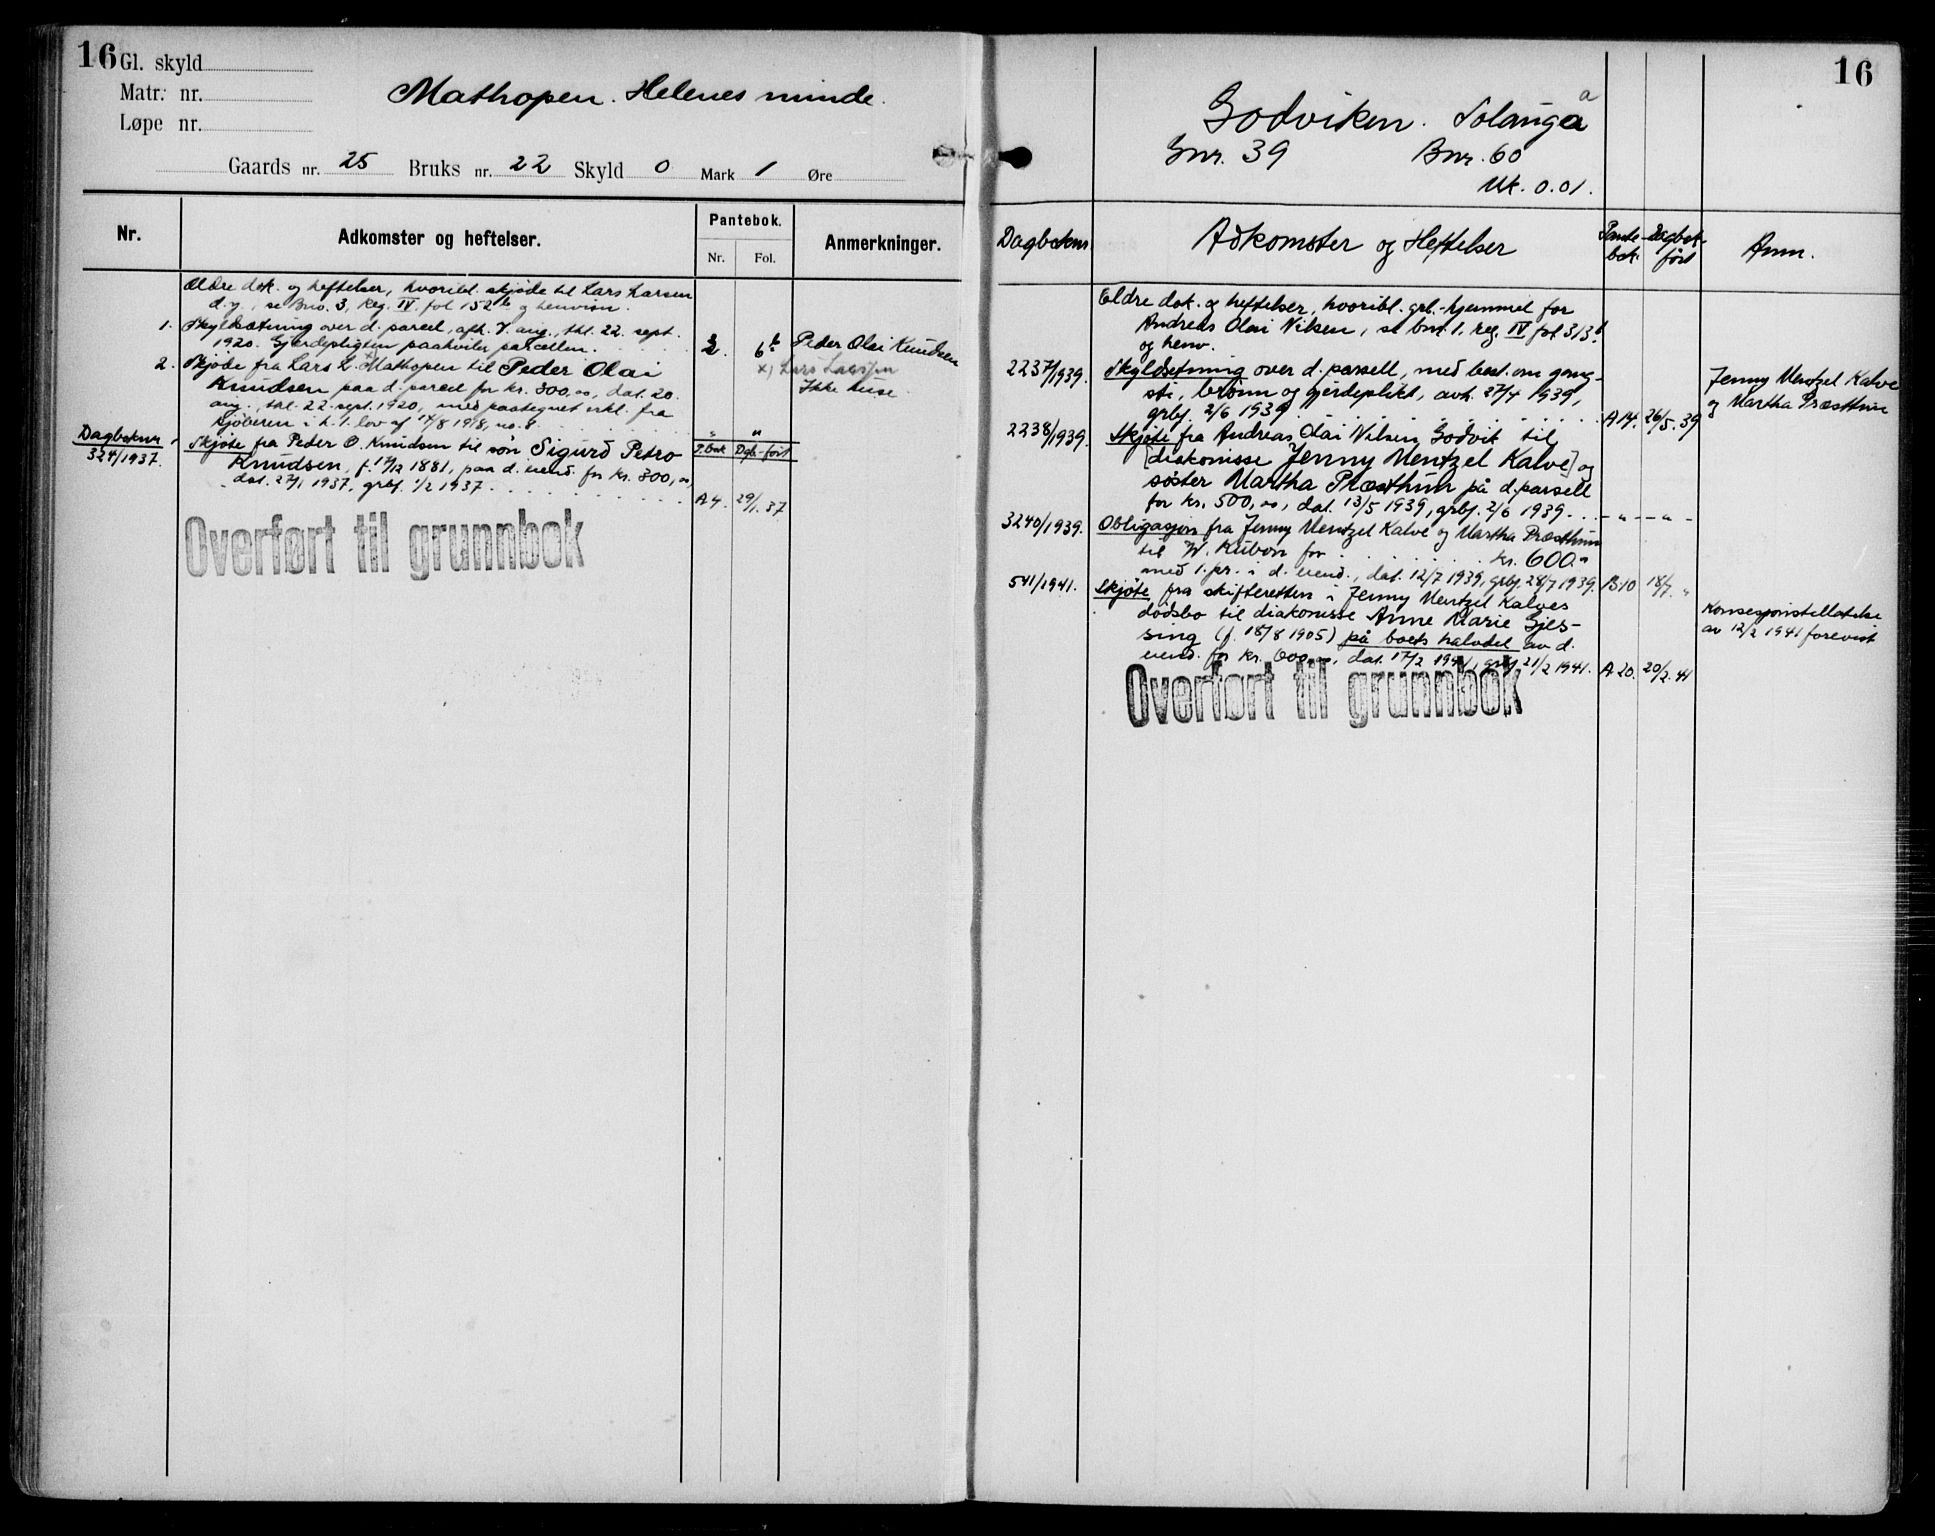 16 Gl. skyld
Matr. nr.
Løpe nr.
Mathopen. Helenes minde.
Gaards nr. 25 Bruks nr. 22 Skyld 0 Mark 1 Øre
Nr.
Adkomster og heftelser.
Pantebok.
Nr. Fol.
Anmerkninger.
Ældre dok. og heftelser, hvoribl. skjøde til Lars Larsen
d.y., se Bno. 3, Reg. IV fol 152 b og henvisn.
1. Skyldsætning over d. parcel, afh. 7. aug., thl. 22. sept.
1920. Gjerdepligten paahviler parcellen. 2. 6 b
Peder Olai Knudsen
x) Lars Larsen
Ikke huse.
2. Skjøde fra Lars L. x) Mathopen til Peder Olai
Knudsen paa d. parcel for kr. 300,00, dat. 20.
aug., thl. 22. sept. 1920, med paategnet erkl. fra
kjøberen i h. t. lov af 14/8 1918, no. 8 " "
Dagboknr.
P.bok Dgb.-ført
324/1937. Skjøte fra Peder O. Knudsen til søn Sigurd Petro
Knudsen, f. 17/12 1881, paa d. eiend. for kr. 300,00,
dat. 27/1 1937, grbf. 1/2 1937. A 4. 29/1. 37
Overført til grunnbok
16
Godviken. Solaug a
Gnr. 39 Bnr. 60
Mk. 0.01.
Dagboknr.
Adkomster og Heftelser
Pante-bok.
Dagbok-ført
Anm.
Eldre dok. og heftelser, hvoribl. grb.-hjemmel for
Andreas Olai Nilsen, se bnr. 1. reg. IV fol 313 b
og henv.
2237/1939. Skyldsetning over d. parsell, med best. om gang-
sti, brønn og gjerdeplikt, avh. 27/4 1939,
grbf. 2/6 1939 A 14. 26/5. 39
Jenny Mentzel Kalve
og Martha Præsthun
2238/1939. Skjøte fra Andreas Olai Nilsen Godvik til
[diakonisse Jenny Mentzel Kalve] og
søster Martha Præsthun på d. parsell
for kr. 500,00, dat. 13/5 1939, grbf. 2/6 1939. - " - - " -
3240/1939. Obligasjon fra Jenny Mentzel Kalve og Martha Præsthun
til W. Kubon for kr. 600.-
med 1. pr. i d. eiend., dat. 12/7 1939, grbf. 28/7 1939. B 10 18/7. "
541/1941. Skjøte fra skifteretten i Jenny Mentzel Kalves
dødsbo til diakonisse Anne Marie Gjes-
sing (f. 18/8 1905) på boets halvdel av d.
eiend. for kr. 600,00, dat. 17/2 1941, grbf. 21/2 1941. A 20. 20/2. 41
Konsesjonstillatelse
av 12/2 1941 forevist
Overført til grunnbok